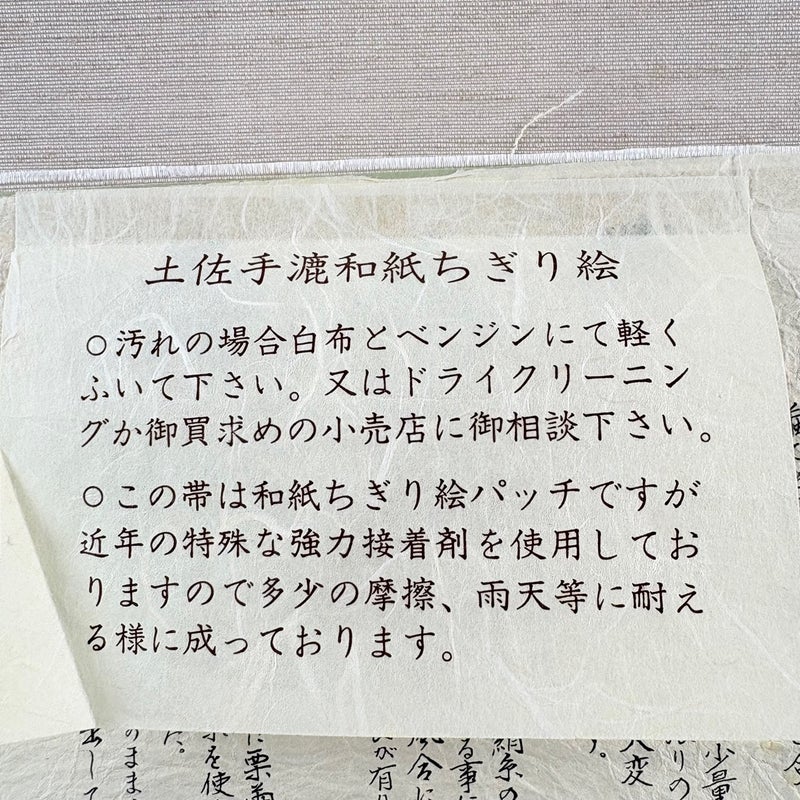 土佐手漉和紙ちぎり絵
○汚れの場合白布とベンジンにて軽く
ふいて下さい。又はドライクリーニン
グか御買求めの小売店に御相談下さい。
○この帯は和紙ちぎり絵パッチですが
近年の特殊な強力接着剤を使用してお
りますので多少の摩擦、雨天等に耐え
る様に成っております。
少量
大変
絹糸の
る事に
風合に
が有り
に栗繭
を使
のまま
出して